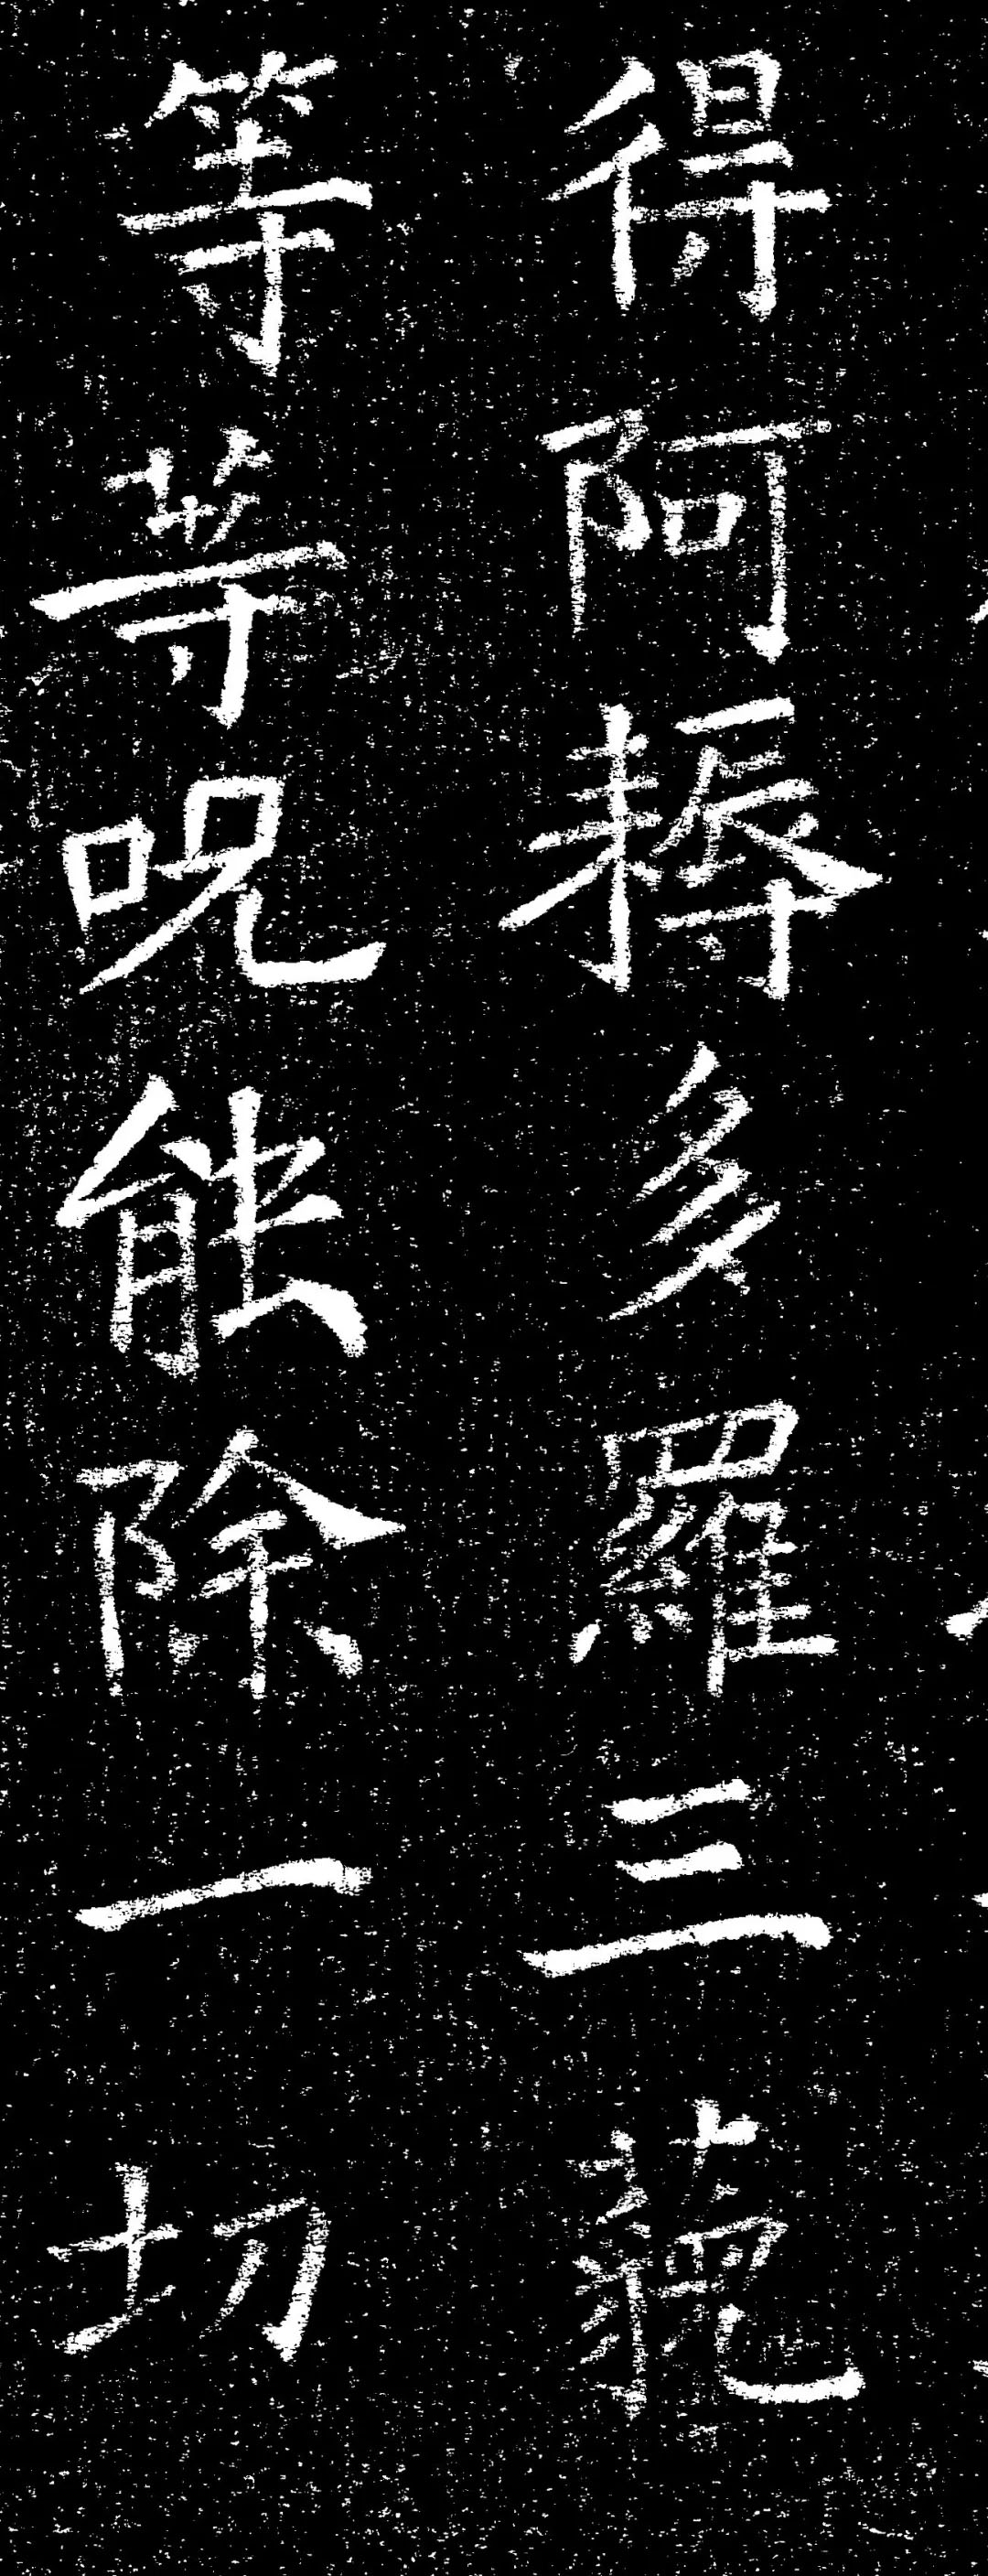 得阿耨多羅三藐
等等呪能除一切